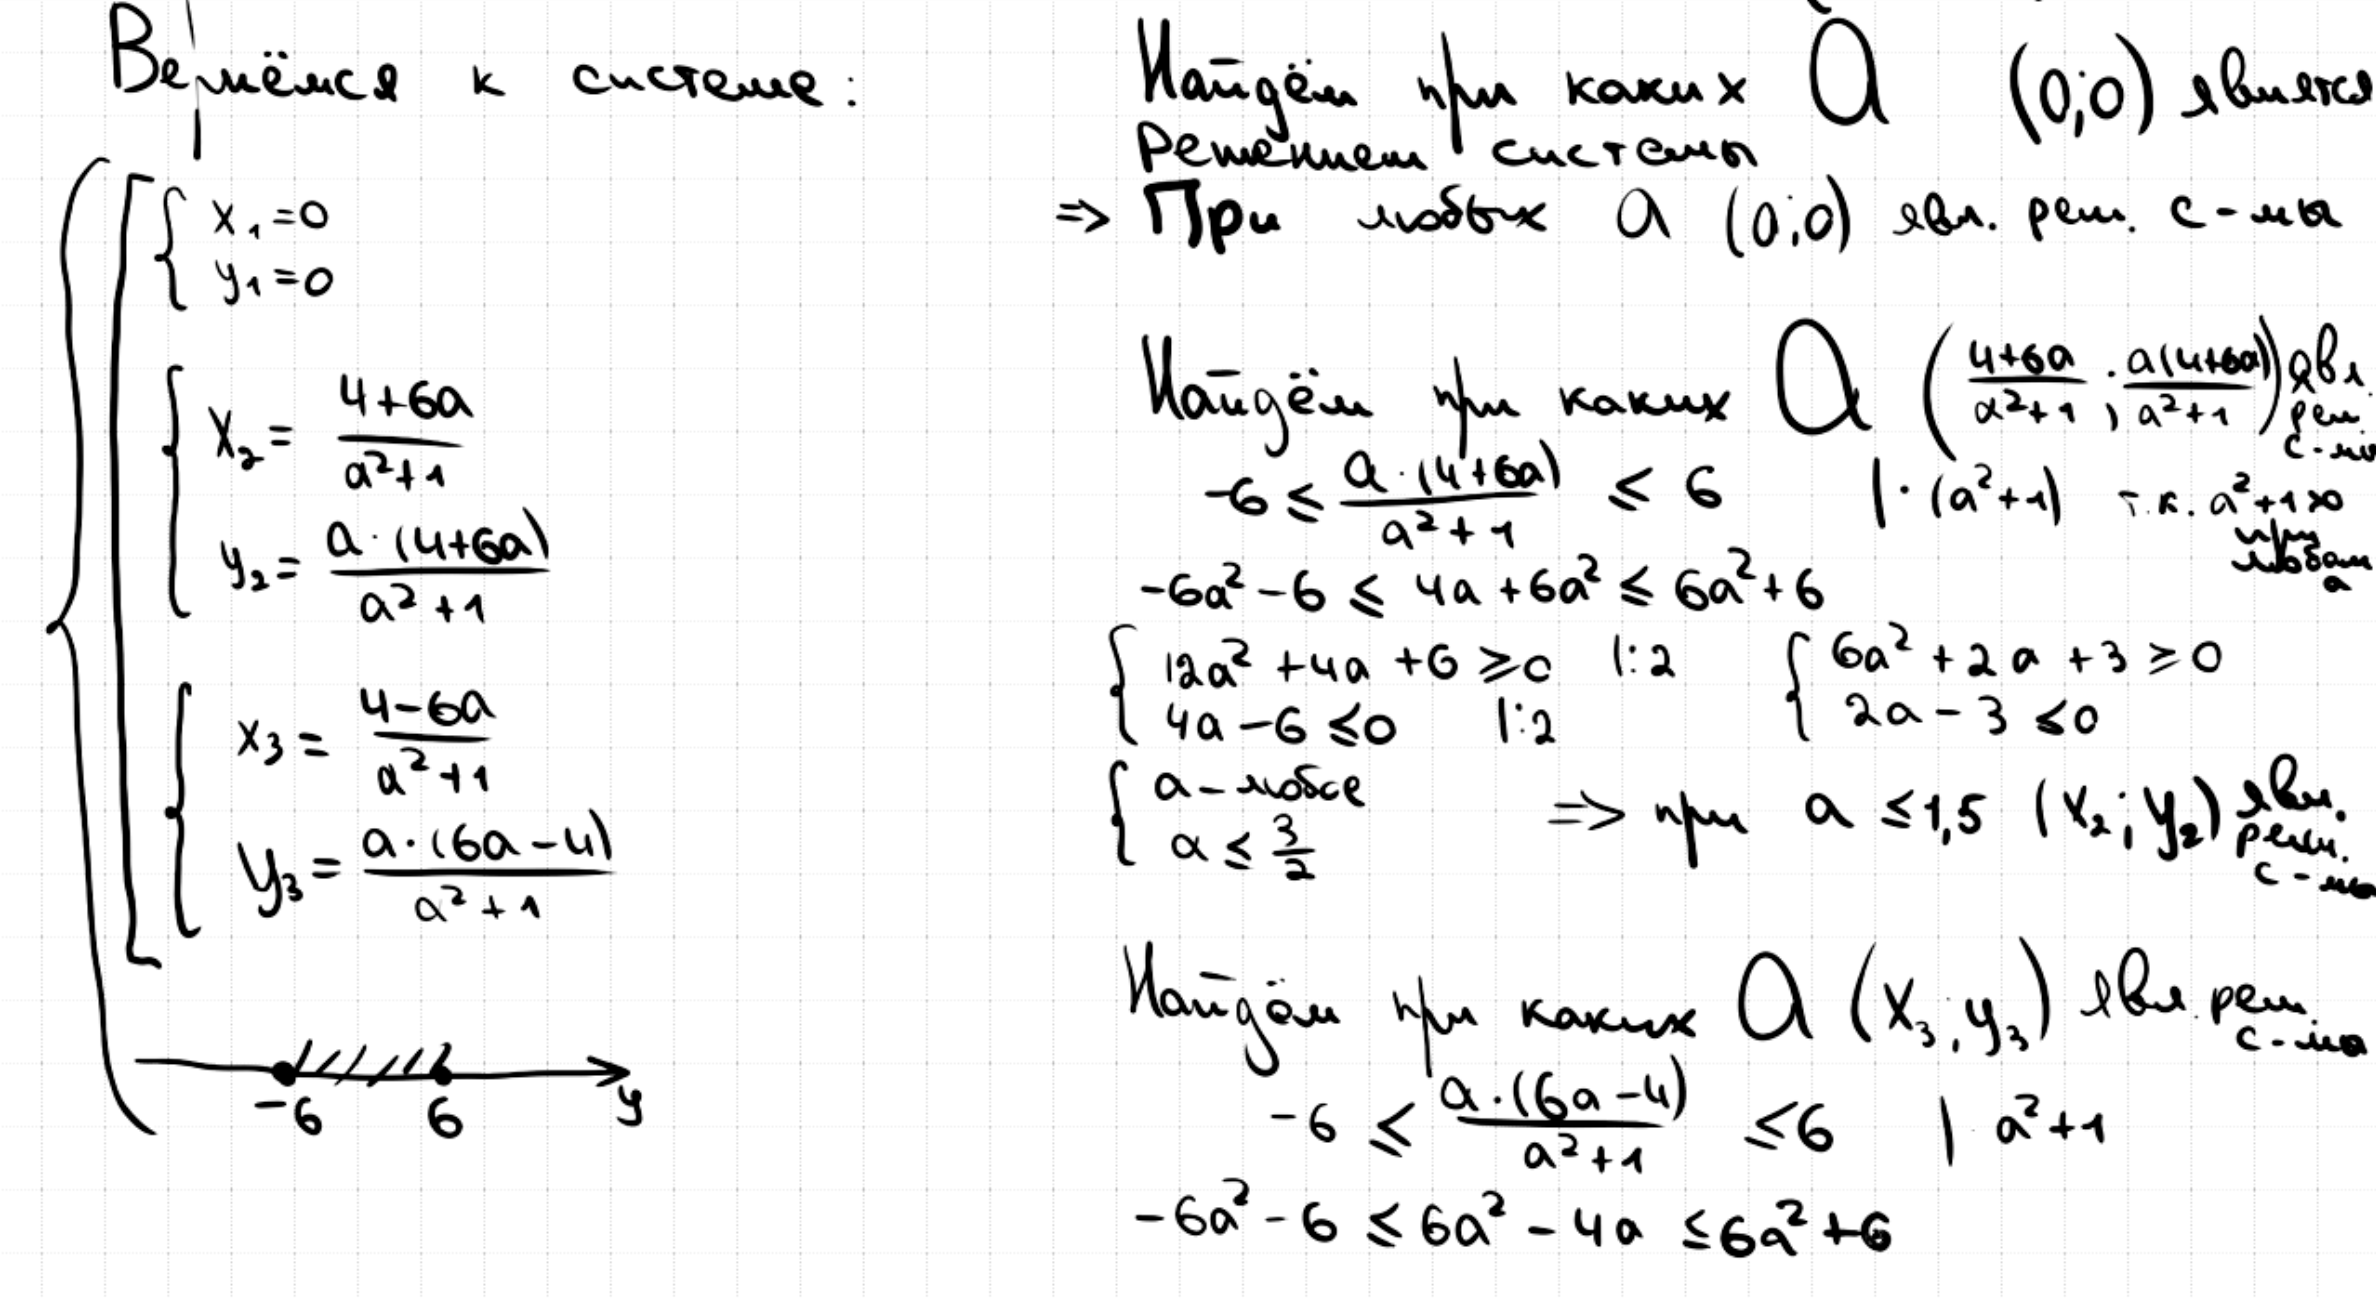 Вернёмся к системе:
{ [ { x₁ = 0
y₁ = 0
{ x₂ = (4+6a)/(a²+1)
y₂ = a·(4+6a)/(a²+1)
{ x₃ = (4-6a)/(a²+1)
y₃ = a·(6a-4)/(a²+1)
-6 6 y
Найдём при каких a (0;0) является
решением системы
=> При любых a (0;0) явл. реш. с-мы
Найдём при каких a ((4+6a)/(a²+1); a(4+6a)/(a²+1)) явл. реш. с-мы
-6 ≤ a·(4+6a)/(a²+1) ≤ 6 |·(a²+1) т.к. a²+1>0 при любом a
-6a²-6 ≤ 4a+6a² ≤ 6a²+6
{ 12a²+4a+6 ≥ 0 |:2 { 6a²+2a+3 ≥ 0
4a-6 ≤ 0 |:2 2a-3 ≤ 0
{ a - любое
a ≤ 3/2 => при a ≤ 1,5 (x₂; y₂) явл. реш. с-мы
Найдём при каких a (x₃; y₃) явл. реш. с-мы
-6 ≤ a·(6a-4)/(a²+1) ≤ 6 |· a²+1
-6a²-6 ≤ 6a²-4a ≤ 6a²+6